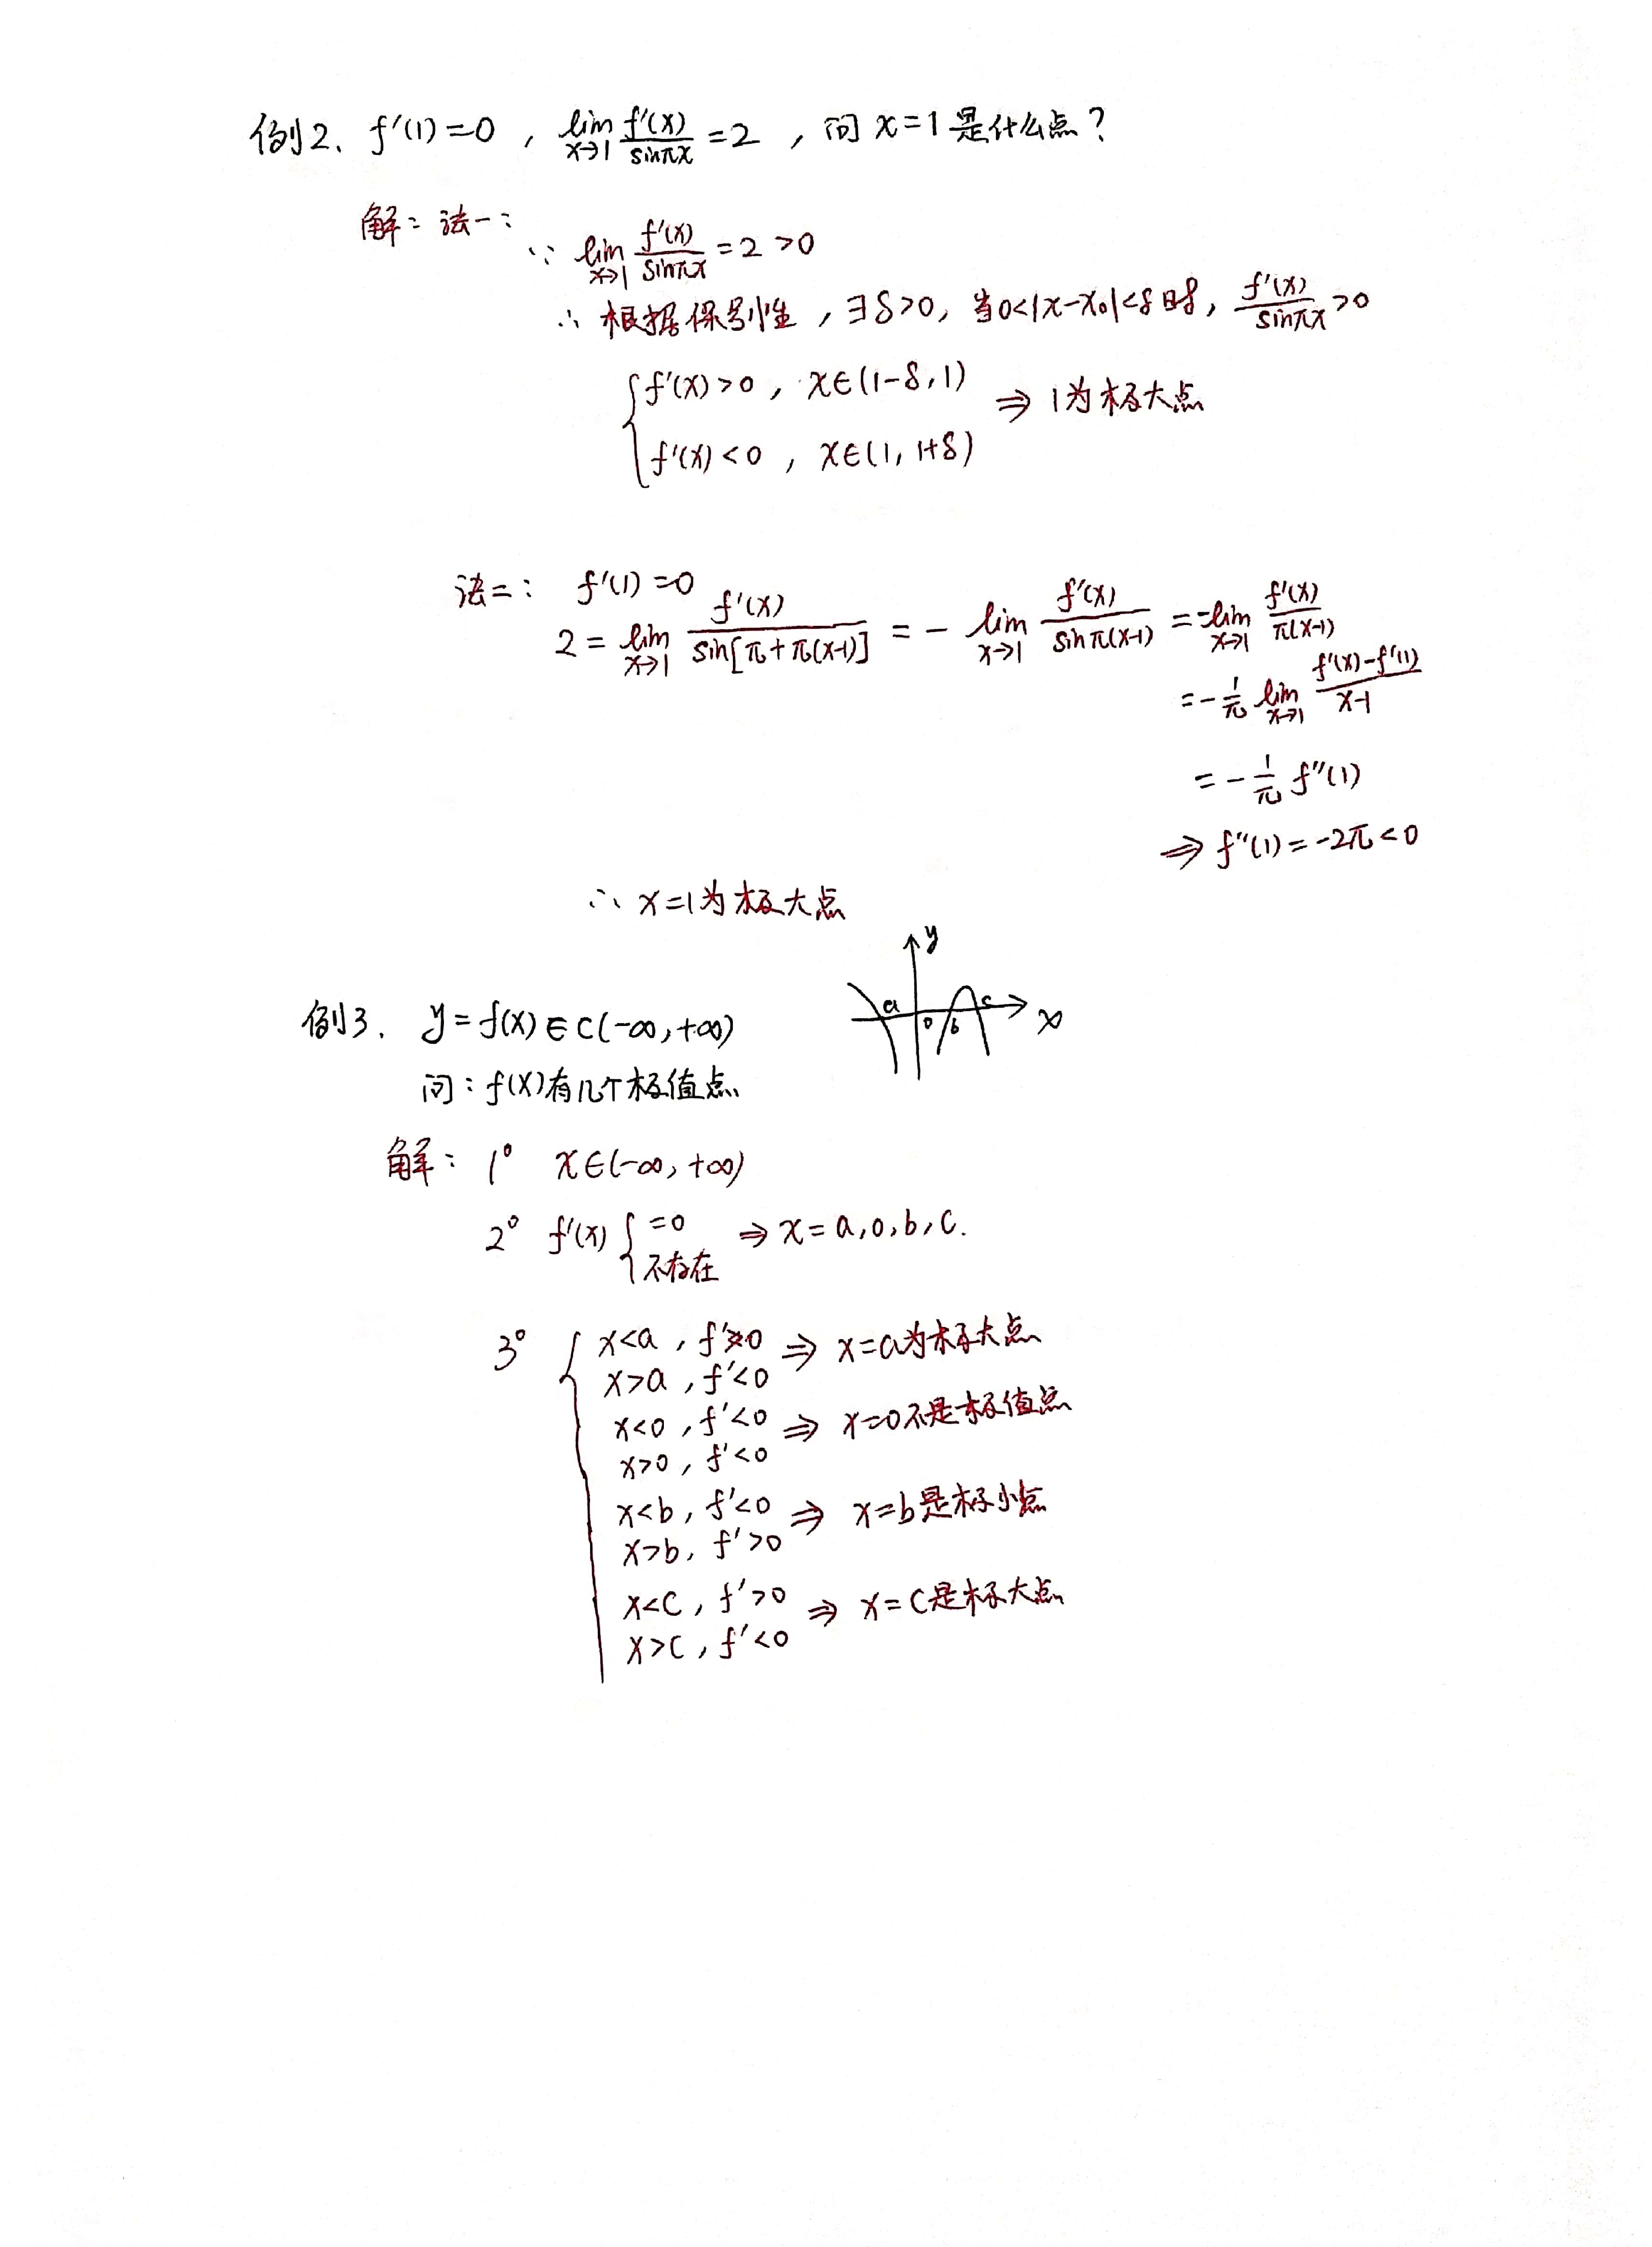 例2、f'(1)=0，lim_{x→1} f'(x)/sinπx =2，问 x=1是什么点？
解：法一：
∵ lim_{x→1} f'(x)/sinπx =2>0
∴ 根据保号性，∃δ>0，当0<|x-x₀|<δ时，f'(x)/sinπx >0
{ f'(x)>0，x∈(1-δ,1)
f'(x)<0，x∈(1,1+δ) ⇒ 1为极大点
法二： f'(1)=0
2= lim_{x→1} f'(x)/sin[π+π(x-1)] = - lim_{x→1} f'(x)/sinπ(x-1) = -lim_{x→1} f'(x)/π(x-1)
= -1/π lim_{x→1} (f'(x)-f'(1))/(x-1)
= -1/π f''(1)
⇒ f''(1)=-2π<0
∴ x=1为极大点
y
a o b c x
例3. y=f(x)∈C(-∞,+∞)
问：f(x)有几个极值点
解： 1° x∈(-∞,+∞)
2° f'(x) { =0 不存在 ⇒ x=a,0,b,c.
3° { x<a，f'>0 ⇒ x=a为极大点
x>a，f'<0
x<0，f'<0 ⇒ x=0不是极值点
x>0，f'<0
x<b，f'<0 ⇒ x=b是极小点
x>b，f'>0
x<c，f'>0 ⇒ x=c是极大点
x>c，f'<0